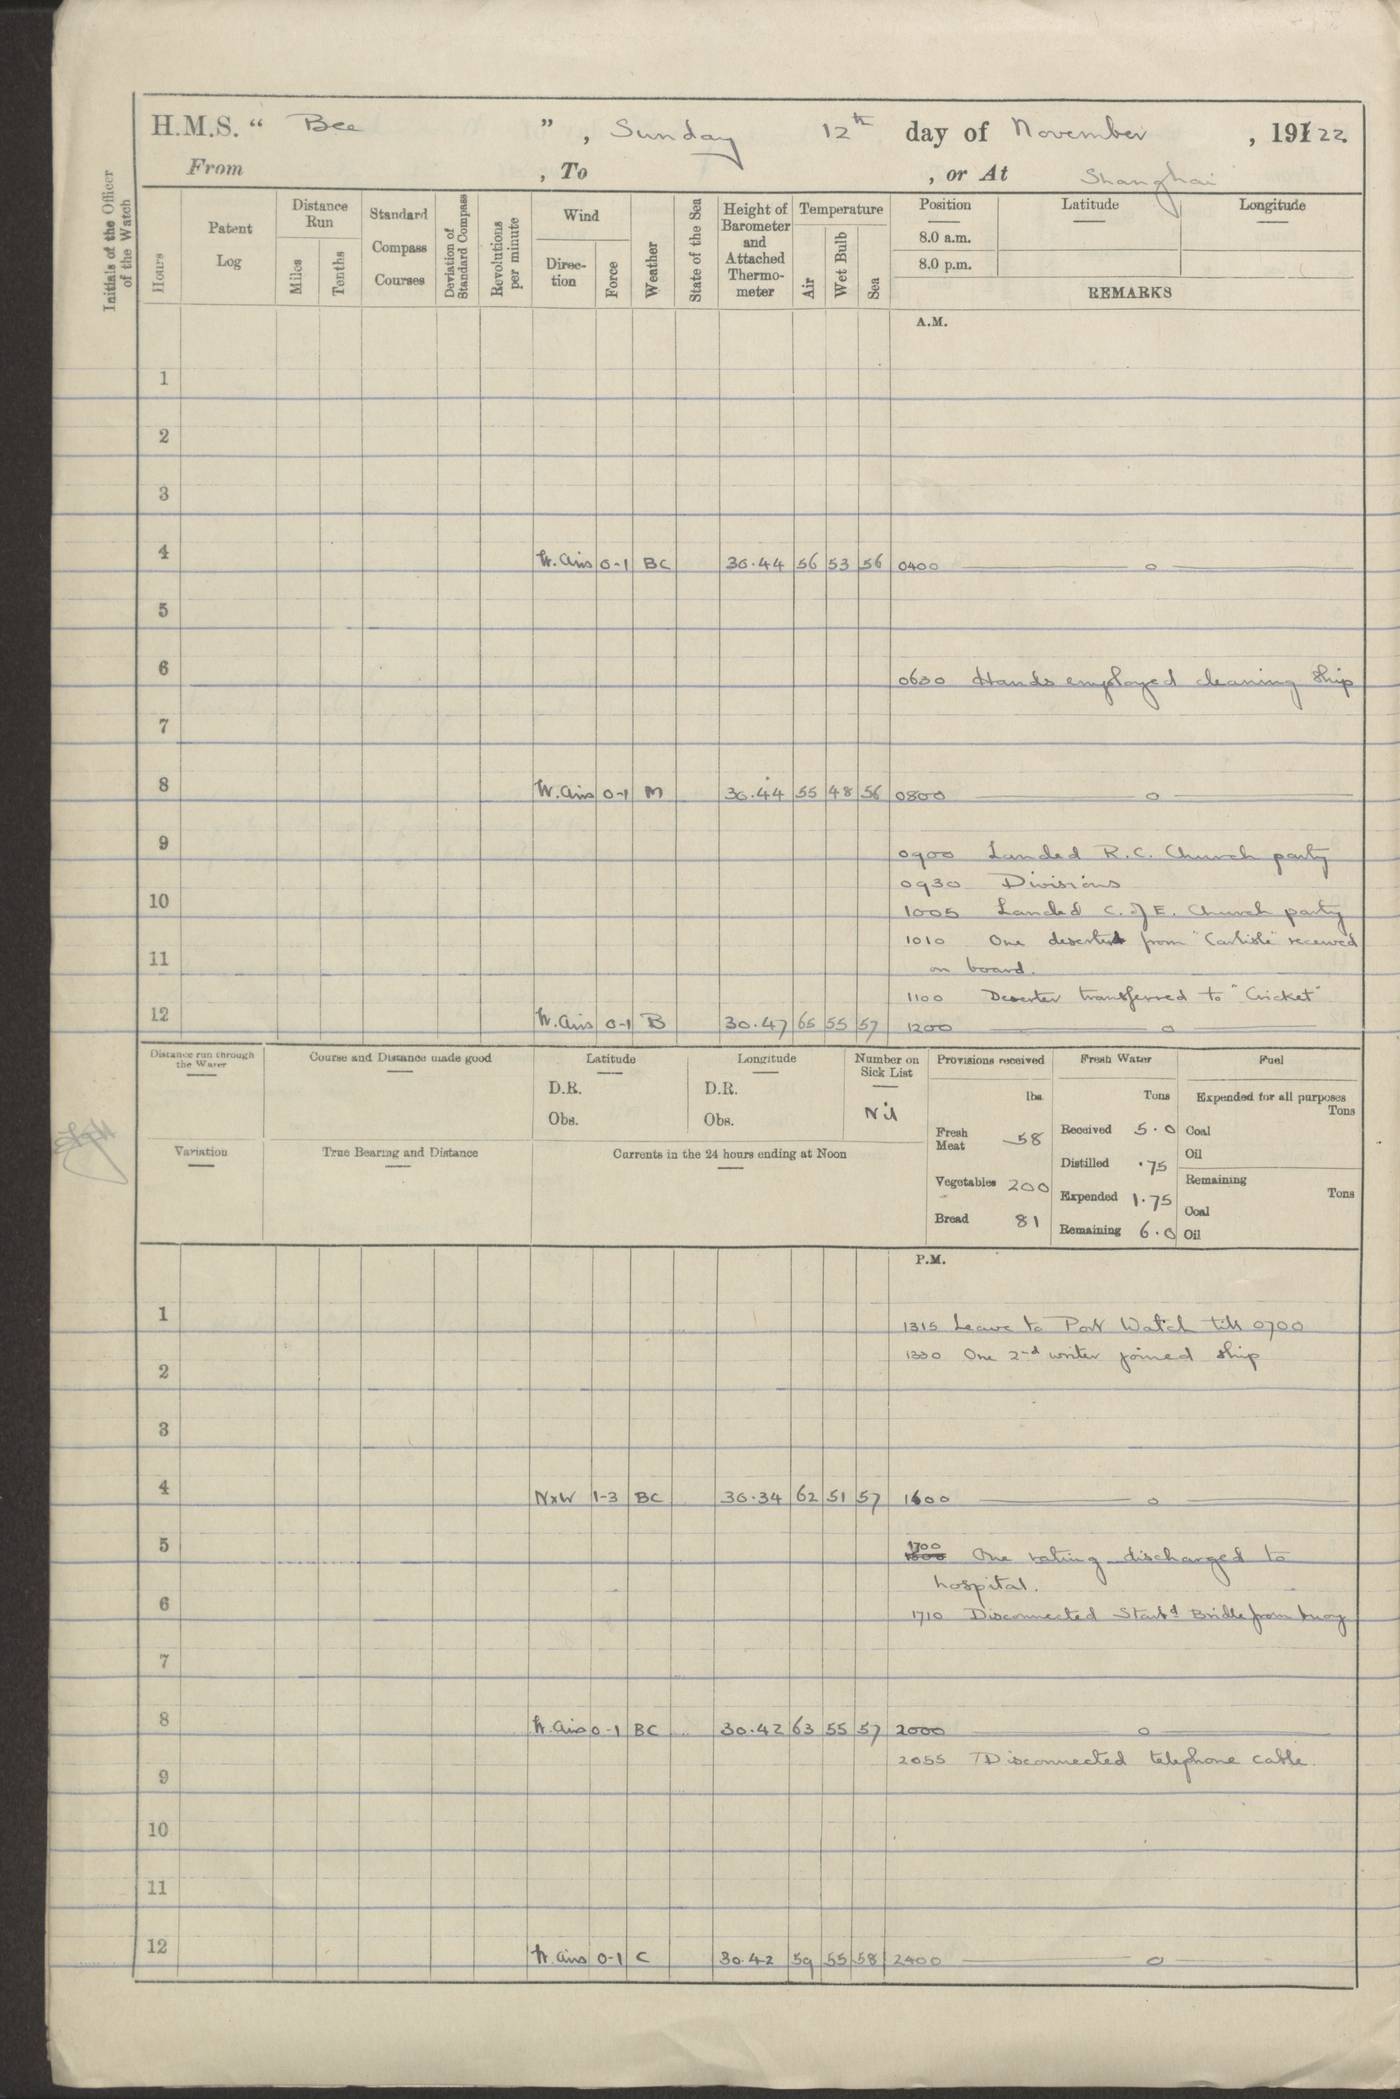 H.M.S. “ Bee ” , Sunday 12th day of November , 19122
From , To , or At Shanghai
Initials of the Officer of the Watch
Hours
Patent Log
Distance Run
Miles
Tenths
Standard Compass Courses
Deviation of Standard Compass
Revolutions per minute
Wind
Direction
Force
Weather
State of the Sea
Height of Barometer and Attached Thermo-meter
Temperature
Air
Wet Bulb
Sea
Position
8.0 a.m.
8.0 p.m.
Latitude
Longitude
REMARKS
A.M.
1
2
3
4 W. Airs 0-1 BC 30.44 56 53 56 0400 —— o ——
5
6 0630 Hands employed cleaning ship
7
8 W. Airs 0-1 M 30.44 55 48 56 0800 —— o ——
9 0900 Landed R.C. Church party
0930 Divisions
10 1005 Landed C. of E. Church party
1010 One deserter from "Carlisle" received
11 on board.
1100 Deserter transferred to "Cricket"
12 W. Airs 0-1 B 30.47 65 55 57 1200 —— o ——
Distance run through the Water
Course and Distance made good
Latitude
D.R.
Obs.
Longitude
D.R.
Obs.
Number on Sick List
Nil
Provisions received
lbs.
Fresh Meat 58
Vegetables 200
Bread 81
Fresh Water
Tons
Received 5.0
Distilled .75
Expended 1.75
Remaining 6.0
Fuel
Expended for all purposes
Tons
Coal
Oil
Remaining
Tons
Coal
Oil
Variation
True Bearing and Distance
Currents in the 24 hours ending at Noon
P.M.
1 1315 Leave to Port Watch till 0700
1330 One 2nd writer joined ship
2
3
4 NxW 1-3 BC 30.34 62 51 57 1600 —— o ——
5 1700 One rating discharged to
hospital.
6 1710 Disconnected Starbd Bridle from buoy
7
8 W. Airs 0-1 BC 30.42 63 55 57 2000 —— o ——
2055 Disconnected telephone cable
9
10
11
12 W. Airs 0-1 C 30.42 59 55 58 2400 —— o ——